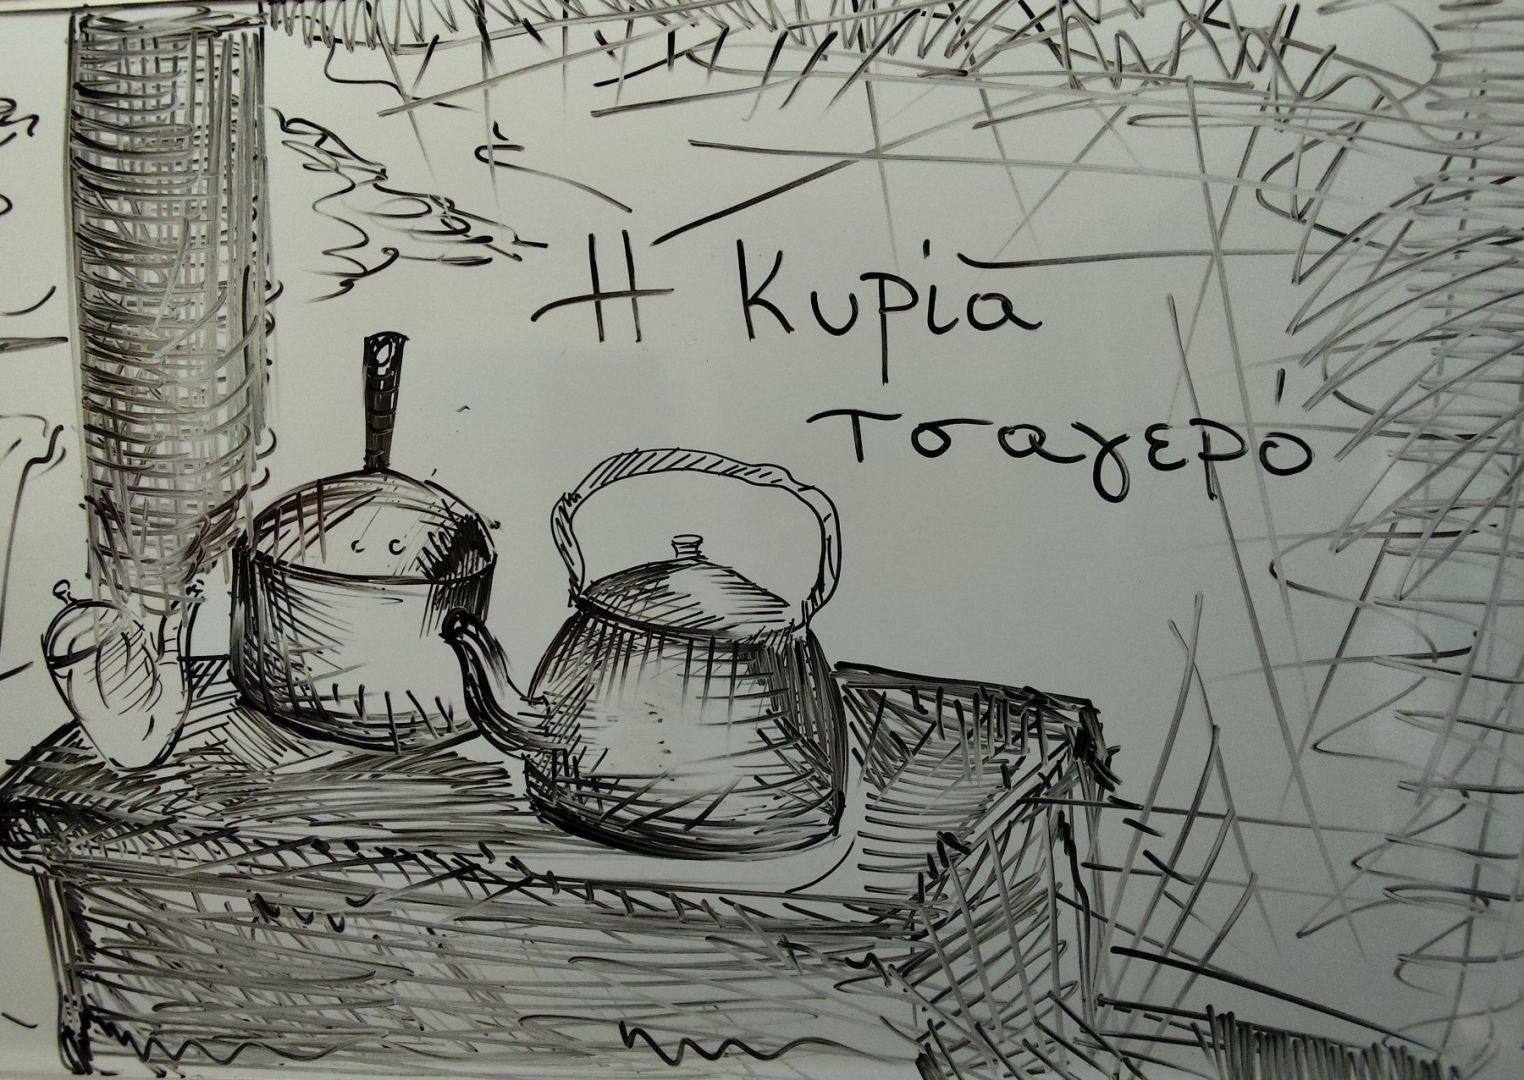 Η Κυρία
τσαγερό